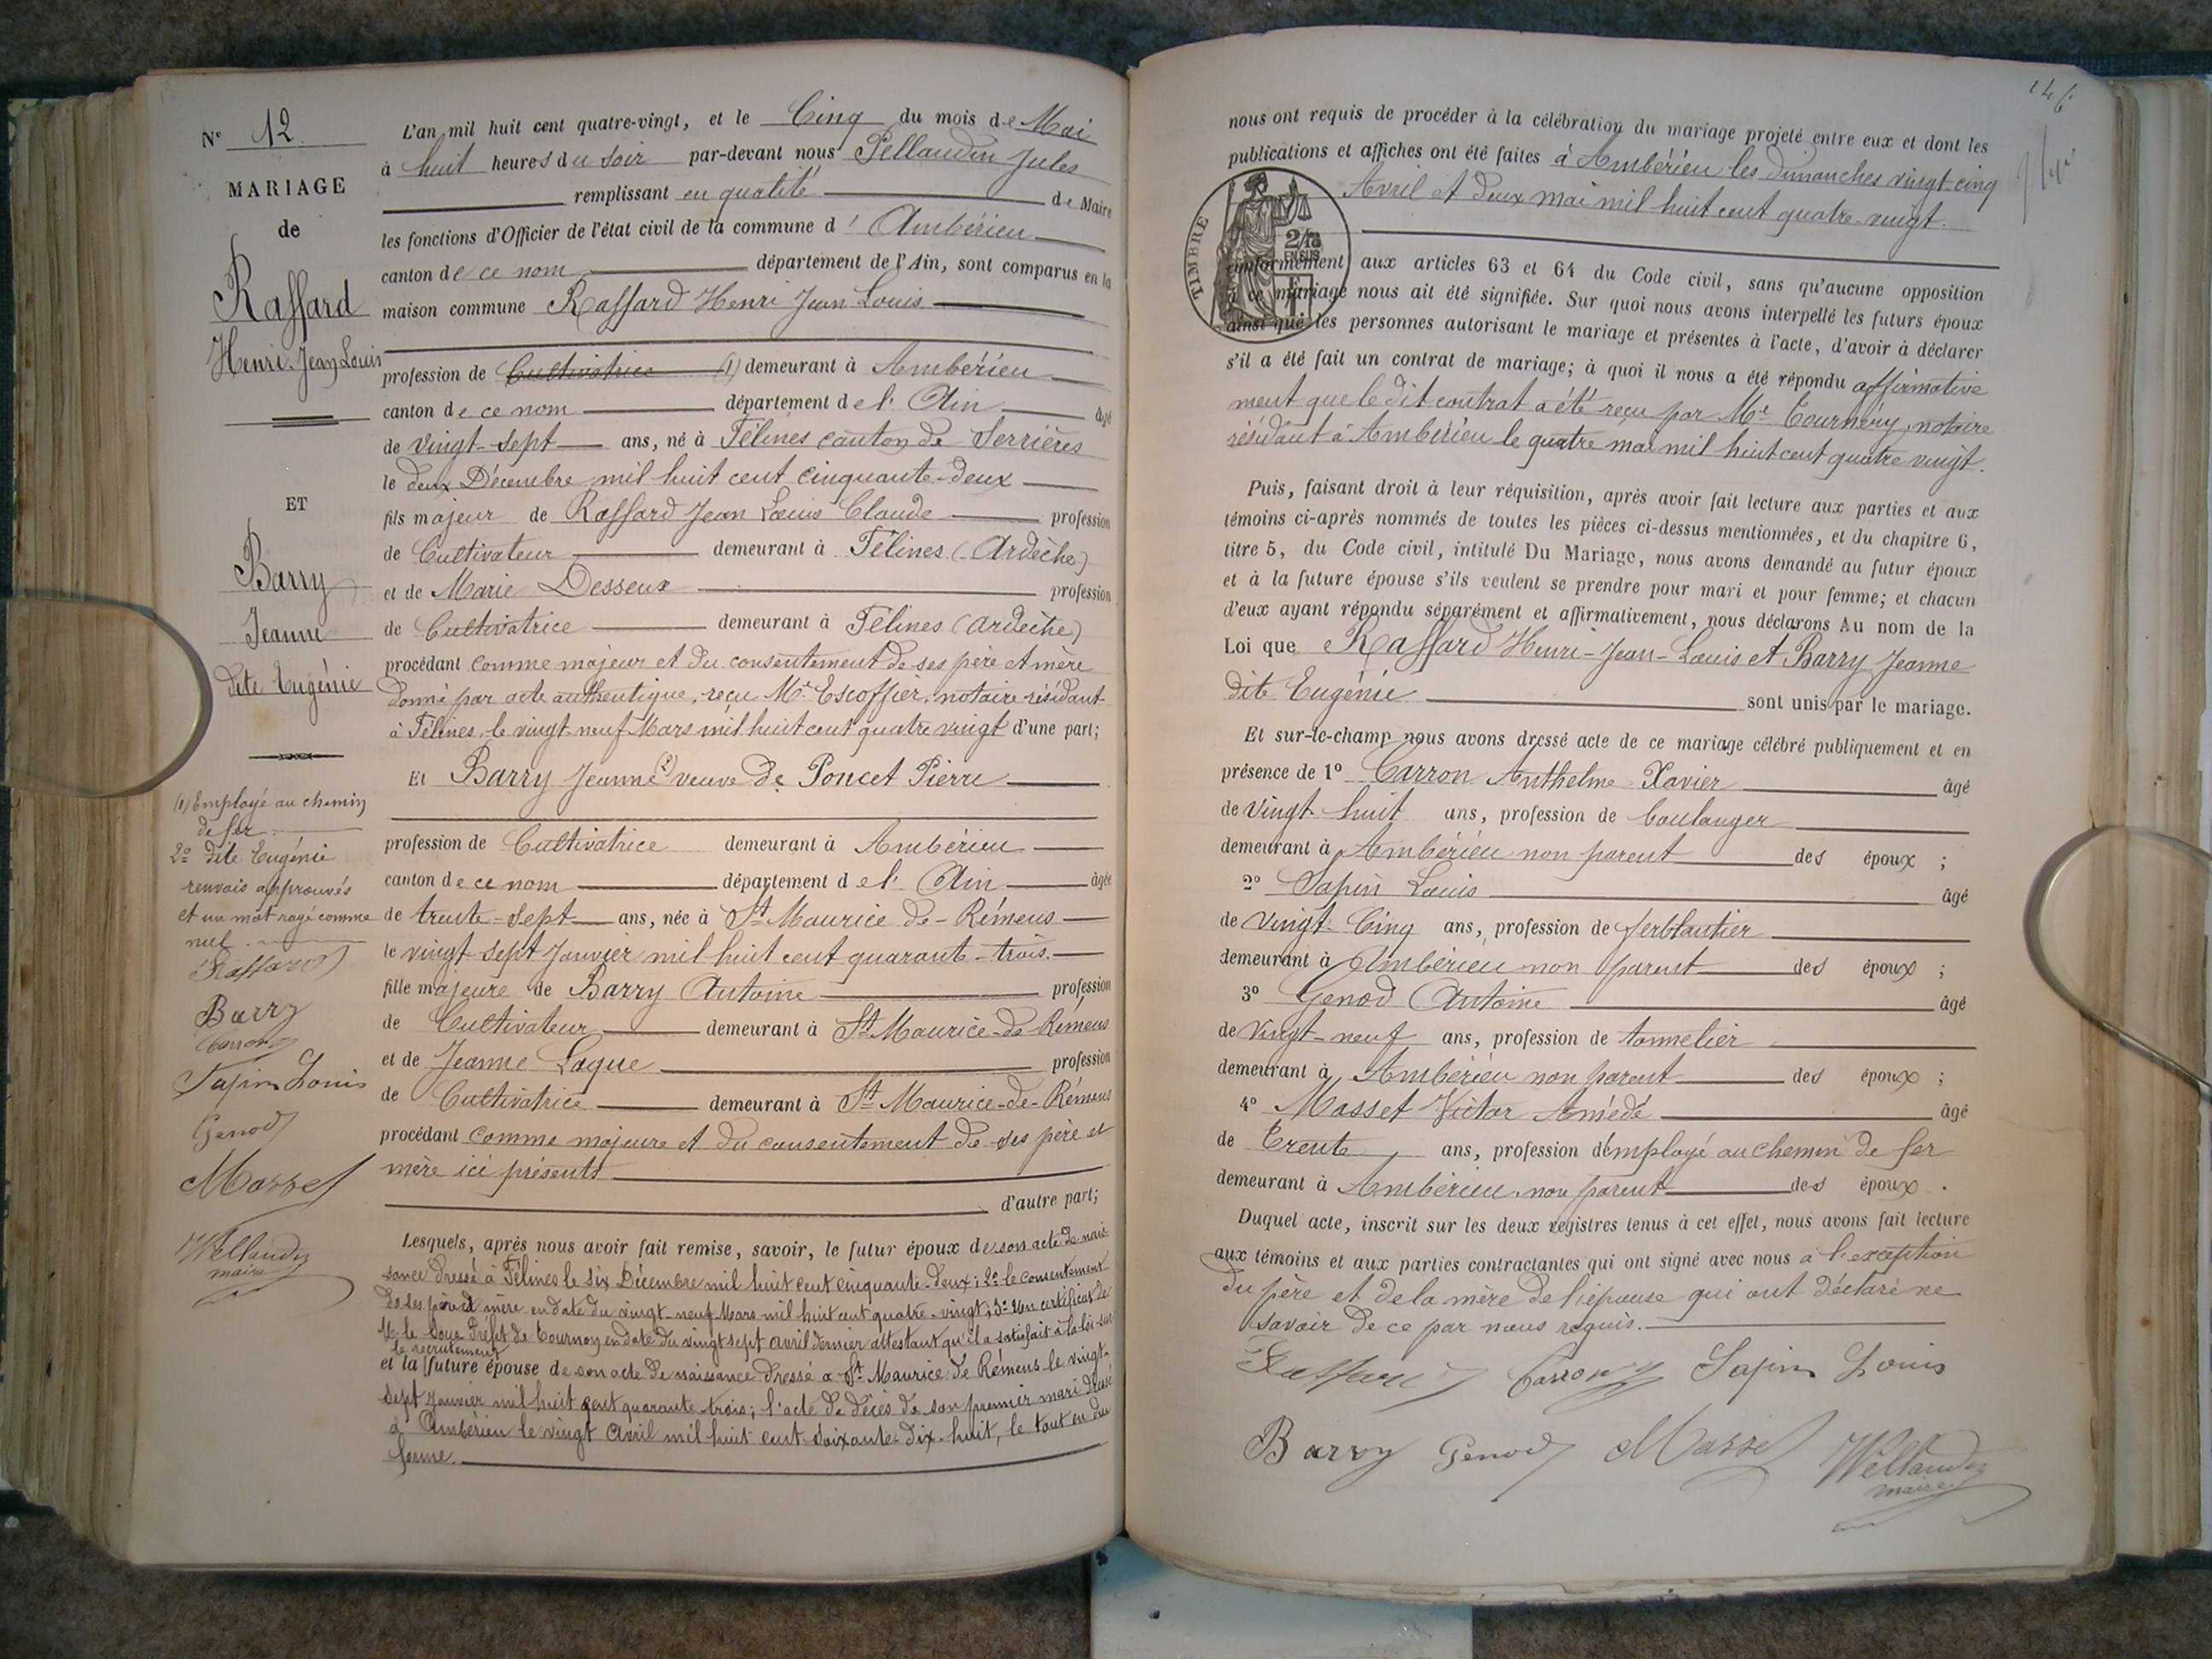 N° 12
MARIAGE
de
Raffard
Henri Jean Louis
ET
Barry
Jeanne
dite Eugénie
(1) Employé au chemin
de fer
2° dite Eugénie
renvois approuvés
et un mot rayé comme
nul.
Raffard
Barry
Carron
Sapin Louis
Genod
Masset
Pellaudin
maire
L'an mil huit cent quatre-vingt, et le Cinq du mois de Mai
à huit heures du soir par-devant nous Pellaudin Jules
remplissant en qualité de Maire
les fonctions d'Officier de l'état civil de la commune d'Ambérieu
canton de ce nom département de l'Ain, sont comparus en la
maison commune Raffard Henri Jean Louis
profession de Cultivatrice (1) demeurant à Ambérieu
canton de ce nom département de l'Ain âgé
de vingt-sept ans, né à Félines canton de Serrières
le deux Décembre mil huit cent cinquante-deux
fils majeur de Raffard Jean Louis Claude profession
de Cultivateur demeurant à Félines (Ardèche)
et de Marie Desseux profession
de Cultivatrice demeurant à Félines (ardèche)
procédant comme majeur et du consentement de ses père et mère
donné par acte authentique, reçu Me Escoffier, notaire résidant
à Félines, le vingt-neuf Mars mil huit cent quatre vingt d'une part;
Et Barry Jeanne (2) veuve de Poncet Pierre
profession de Cultivatrice demeurant à Ambérieu
canton de ce nom département de l'Ain âgée
de trente-sept ans, née à St Maurice-de-Rémens
le vingt sept Janvier mil huit cent quarante-trois.
fille majeure de Barry Antoine profession
de Cultivateur demeurant à St Maurice-de-Rémens
et de Jeanne Laque profession
de Cultivatrice demeurant à St Maurice-de-Rémens
procédant comme majeure et du consentement de ses père et
mère ici présents
d'autre part;
Lesquels, après nous avoir fait remise, savoir, le futur époux de son acte de nais-
sance dressé à Félines le six Décembre mil huit cent cinquante-deux; 2° le consentement
de ses père et mère en date du vingt-neuf Mars mil huit cent quatre-vingt; 3° un certificat de
Mr le Sous Préfet de Tournon en date du vingt sept avril dernier attestant qu'il a satisfait à la loi sur
le recrutement
et la future épouse de son acte de naissance dressé à St Maurice de Rémens le vingt-
sept Janvier mil huit cent quarante-trois; l'acte de décès de son premier mari dressé
à Ambérieu le vingt Avril mil huit cent soixante-dix-huit, le tout en due
forme.
146
nous ont requis de procéder à la célébration du mariage projeté entre eux et dont les
publications et affiches ont été faites à Ambérieu les dimanches vingt-cinq
Avril et deux mai mil huit cent quatre-vingt.
TIMBRE
conformément aux articles 63 et 64 du Code civil, sans qu'aucune opposition
à ce mariage nous ait été signifiée. Sur quoi nous avons interpellé les futurs époux
ainsi que les personnes autorisant le mariage et présentes à l'acte, d'avoir à déclarer
s'il a été fait un contrat de mariage; à quoi il nous a été répondu affirmative
ment que le dit contrat a été reçu par Me Tournéry, notaire
résidant à Ambérieu le quatre mai mil huit cent quatre vingt.
Puis, faisant droit à leur réquisition, après avoir fait lecture aux parties et aux
témoins ci-après nommés de toutes les pièces ci-dessus mentionnées, et du chapitre 6,
titre 5, du Code civil, intitulé Du Mariage, nous avons demandé au futur époux
et à la future épouse s'ils veulent se prendre pour mari et pour femme; et chacun
d'eux ayant répondu séparément et affirmativement, nous déclarons Au nom de la
Loi que Raffard Henri-Jean-Louis et Barry Jeanne
dite Eugénie sont unis par le mariage.
Et sur-le-champ nous avons dressé acte de ce mariage célébré publiquement et en
présence de 1° Carron Anthelme Xavier âgé
de Vingt-huit ans, profession de boulanger
demeurant à Ambérieu non parent des époux ;
2° Sapin Louis âgé
de Vingt-Cinq ans, profession de ferblantier
demeurant à Ambérieu non parent des époux ;
3° Genod Antoine âgé
de Vingt-neuf ans, profession de tonnelier
demeurant à Ambérieu non parent des époux ;
4° Masset Victor Amédé âgé
de Trente ans, profession d'employé au chemin de fer
demeurant à Ambérieu, non parent des époux.
Duquel acte, inscrit sur les deux registres tenus à cet effet, nous avons fait lecture
aux témoins et aux parties contractantes qui ont signé avec nous à l'exception
du père et de la mère de l'épouse qui ont déclaré ne
savoir de ce par nous requis.
Raffard Carron Sapin Louis
Barry Genod Masset Pellaudin
maire